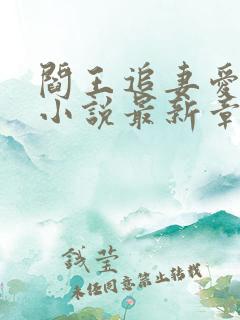 閻王追妻愛
小說最新章
錢莹
未经同意禁止转载